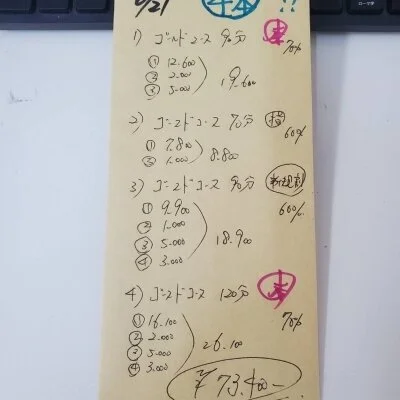 6/21 4本 !!
1) ゴールドコース 90分 本 70%
① 12.600
② 2.000
③ 5.000
19.600
2) ゴールドコース 70分 指 60%
① 7.800
② 1.000
8.800
3) ゴールドコース 90分 新規割 60%
① 9.900
② 1.000
③ 5.000
④ 3.000
18.900
4) ゴールドコース 120分 本 70%
① 16.100
② 2.000
③ 5.000
④ 3.000
26.100
¥73.400-